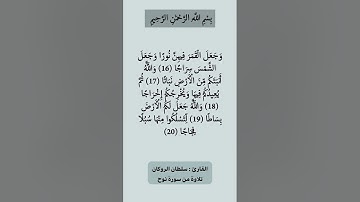 بِسْمِ اللَّهِ الرَّحْمَٰنِ الرَّحِيمِ
وَجَعَلَ الْقَمَرَ فِيهِنَّ نُورًا وَجَعَلَ
الشَّمْسَ سِرَاجًا (16) وَاللَّهُ
أَنبَتَكُم مِّنَ الْأَرْضِ نَبَاتًا (17) ثُمَّ
يُعِيدُكُمْ فِيهَا وَيُخْرِجُكُمْ إِخْرَاجًا
(18) وَاللَّهُ جَعَلَ لَكُمُ الْأَرْضَ
بِسَاطًا (19) لِّتَسْلُكُوا مِنْهَا سُبُلًا
فِجَاجًا (20)
القارئ : سلطان الروكان
تلاوة من سورة نوح